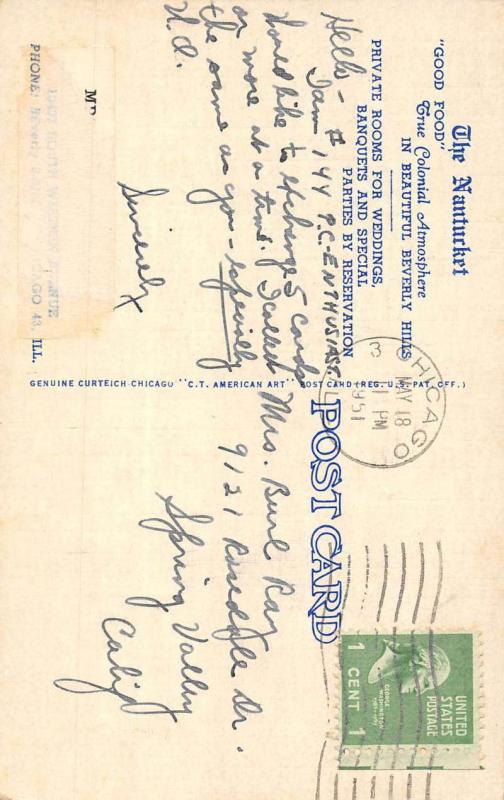 The Nantucket
"GOOD FOOD"
True Colonial Atmosphere
IN BEAUTIFUL BEVERLY HILLS
PRIVATE ROOMS FOR WEDDINGS,
BANQUETS AND SPECIAL
PARTIES BY RESERVATION
Hello-
I am # 144 P.C. ENTHUSIAST.
Would like to exchange 5 cards
or more at a time. I collect
the same as you - especially
H.O.
Sincerely
MR
AVENUE
CHICAGO 43, ILL.
PHONE: Beverly
GENUINE CURTEICH-CHICAGO "C.T. AMERICAN ART" POST CARD (REG. U.S. PAT. OFF.)
POST CARD
CHICAGO
MAY 18
1 PM
1951
3
UNITED
STATES
POSTAGE
GEORGE
WASHINGTON
1 CENT 1
Mrs. Burl Ray
9121 Rosedale Dr.
Spring Valley
Calif